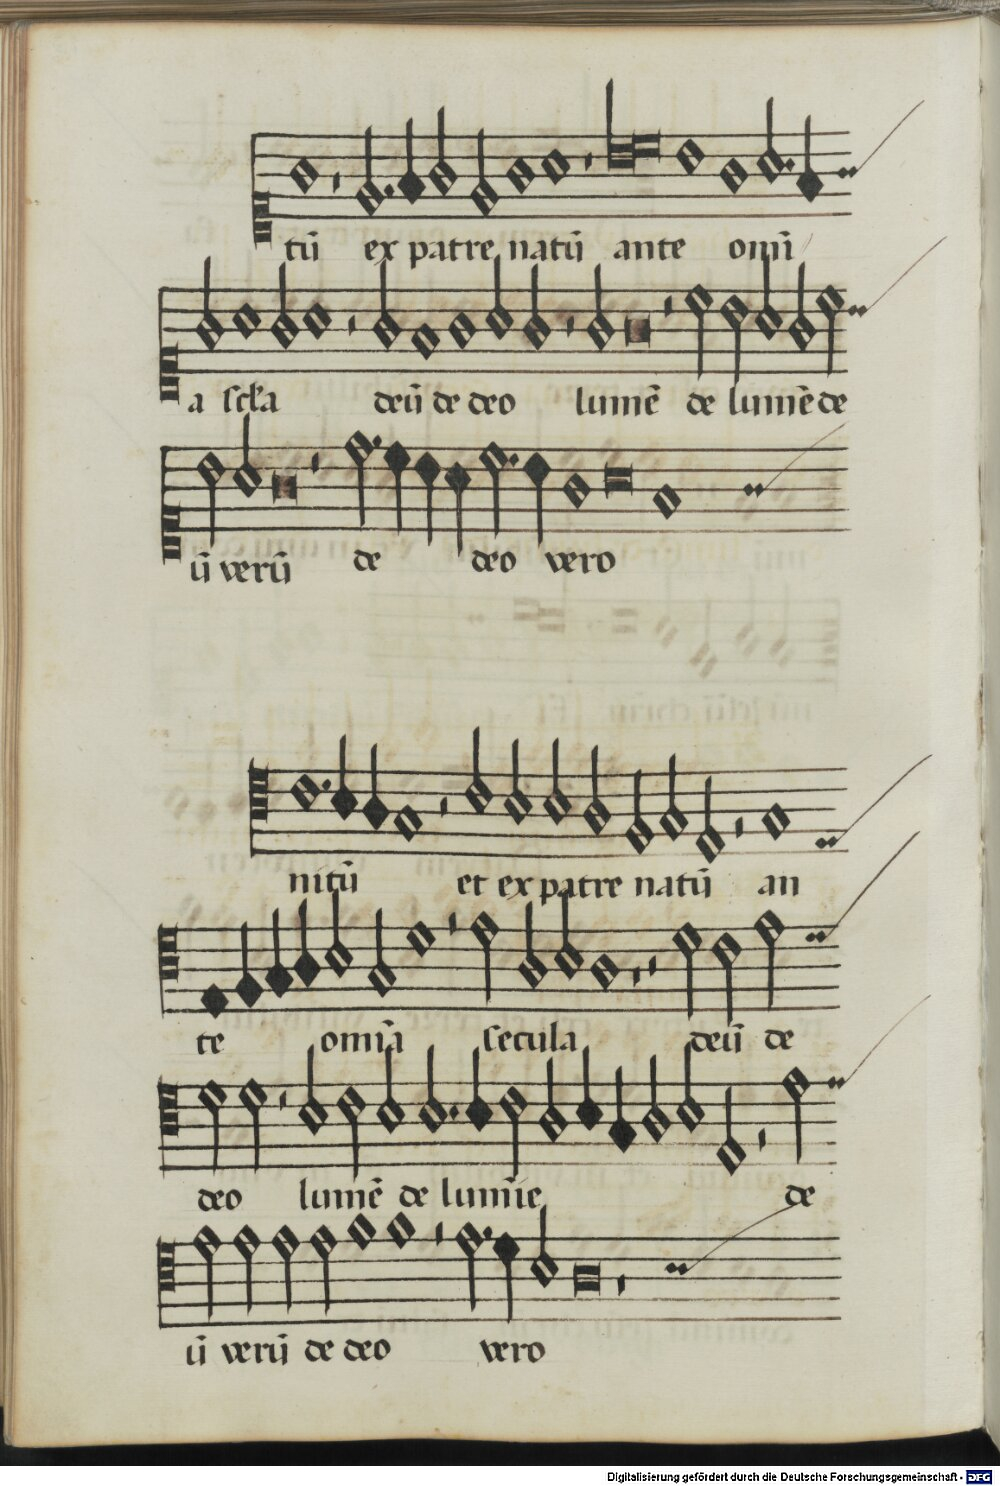 tū ex patre natū ante omī
a scl̄a deū de deo lumē de lumē de
ū verū de deo vero
nitū et ex patre natū an
te omīa secula deū de
deo lumē de lumīe de
ū verū de deo vero
Digitalisierung gefördert durch die Deutsche Forschungsgemeinschaft - DFG